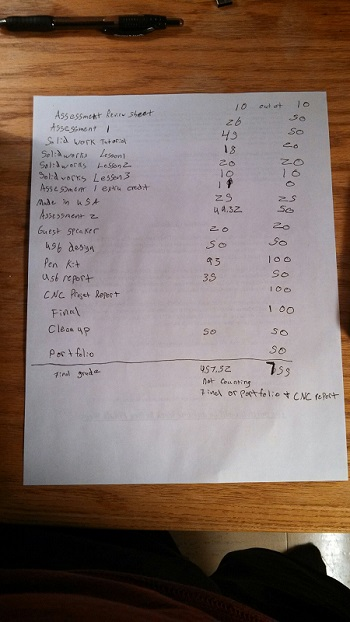 Assessment Review sheet 10 out of 10
Assessment 1 26 50
Solid work tutorial 49 50
Solid works Lesson1 18 20
Solidworks Lesson2 20 20
Solidworks Lesson3 10 10
Assessment 1 extra credit 11 0
Made in USA 25 25
Assessment 2 50
Guest speaker 20 20
USB design 50 50
Pen Kit 95 100
USB report 35 50
CNC Projet Report 100
Final 100
Clean up 50 50
Portfolio 50
Final grade 457.52 755
Not counting
Final or Portfolio + CNC report